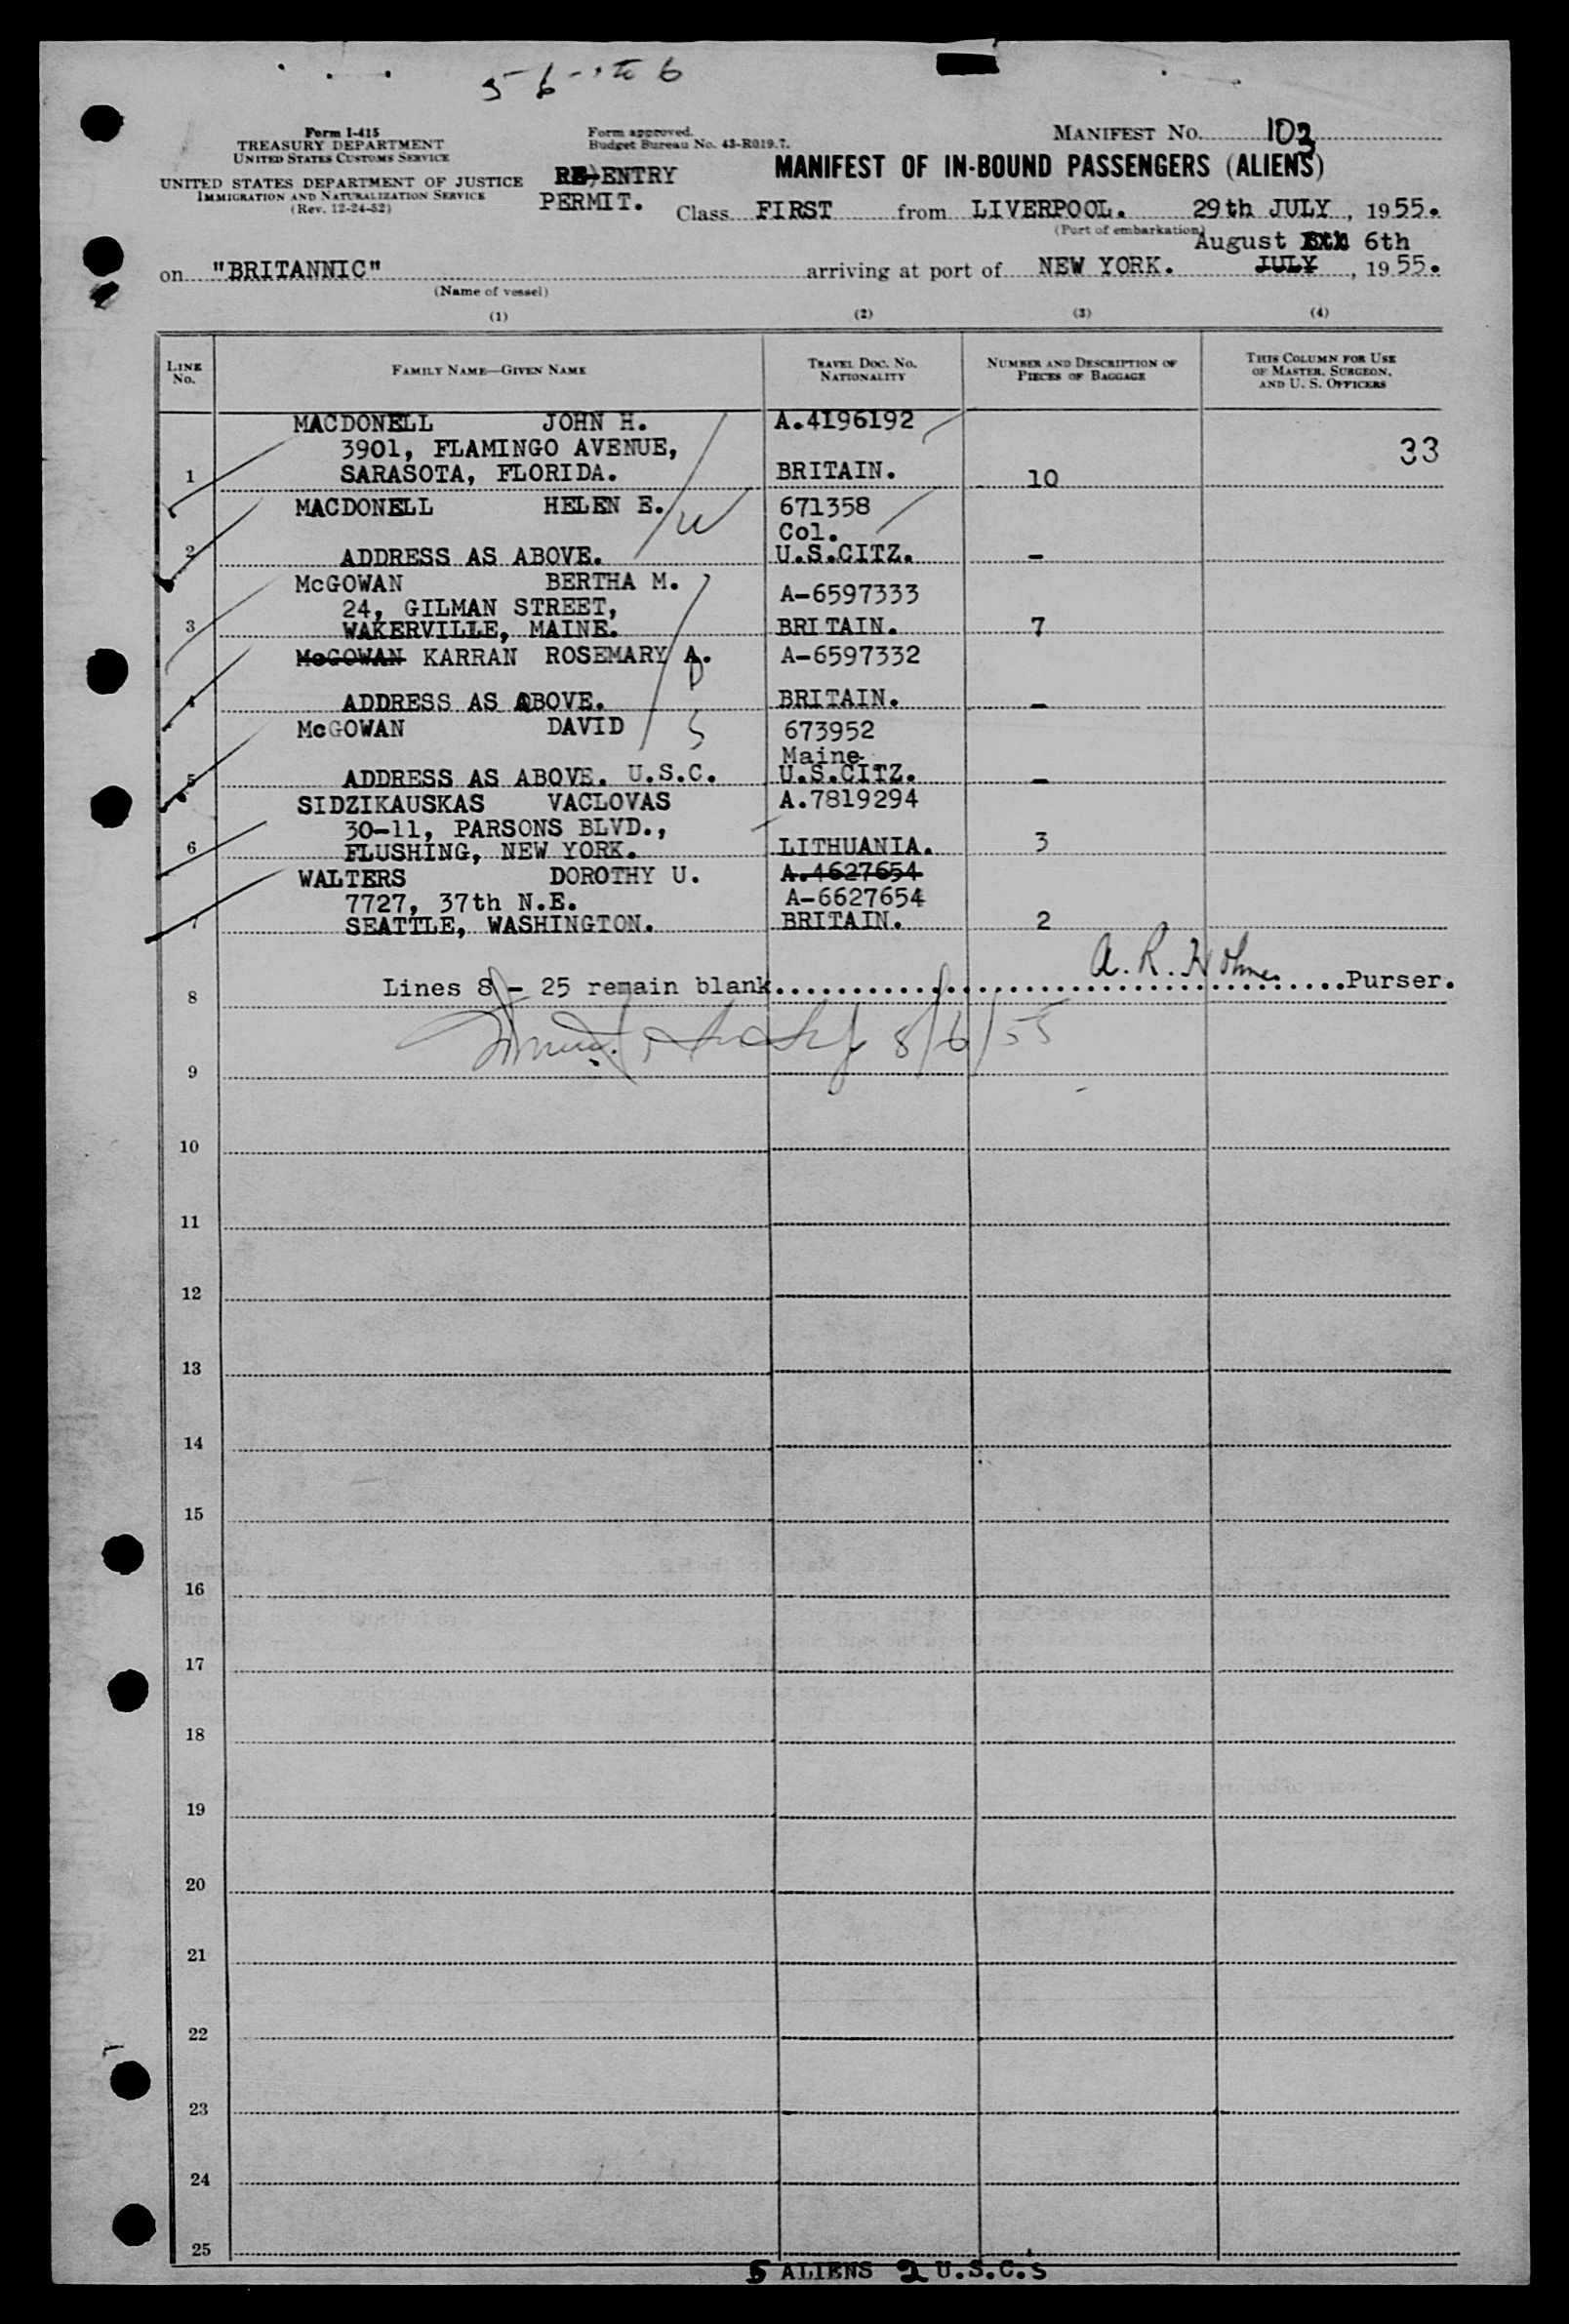 5-6- to 6
Form I-415
TREASURY DEPARTMENT
UNITED STATES CUSTOMS SERVICE
UNITED STATES DEPARTMENT OF JUSTICE
IMMIGRATION AND NATURALIZATION SERVICE
(Rev. 12-24-52)
Form approved.
Budget Bureau No. 43-R019.7.
RE-ENTRY
PERMIT.
MANIFEST NO. 103
MANIFEST OF IN-BOUND PASSENGERS (ALIENS)
Class FIRST from LIVERPOOL. 29th JULY, 1955.
(Port of embarkation)
August 6th
on "BRITANNIC" arriving at port of NEW YORK. JULY, 1955.
(Name of vessel)
(1) (2) (3) (4)
LINE NO. FAMILY NAME—GIVEN NAME TRAVEL DOC. NO. NATIONALITY NUMBER AND DESCRIPTION OF PIECES OF BAGGAGE THIS COLUMN FOR USE OF MASTER, SURGEON, AND U. S. OFFICERS
MACDONELL JOHN H. A.4196192
3901, FLAMINGO AVENUE, 33
1 SARASOTA, FLORIDA. BRITAIN. 10
MACDONELL HELEN E. 671358
Col.
2 ADDRESS AS ABOVE. U.S.CITZ. -
McGOWAN BERTHA M. A-6597333
24, GILMAN STREET,
3 WAKERVILLE, MAINE. BRITAIN. 7
McGOWAN KARRAN ROSEMARY A. A-6597332
4 ADDRESS AS ABOVE. BRITAIN. -
McGOWAN DAVID 5 673952
Maine
5 ADDRESS AS ABOVE. U.S.C. U.S.CITZ. -
SIDZIKAUSKAS VACLOVAS A.7819294
30-11, PARSONS BLVD.,
6 FLUSHING, NEW YORK. LITHUANIA. 3
WALTERS DOROTHY U. A.4627654
7727, 37th N.E. A-6627654
7 SEATTLE, WASHINGTON. BRITAIN. 2
A. R. Holmes
8 Lines 8 - 25 remain blank........................................Purser.
8/6/55
9
10
11
12
13
14
15
16
17
18
19
20
21
22
23
24
25
5 ALIENS 2 U.S.C.s